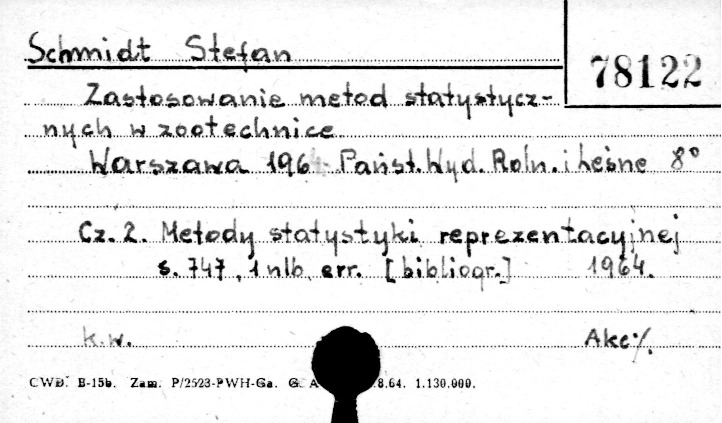 Schmidt Stefan
78122
Zastosowanie metod statystycz-
nych w zootechnice
Warszawa 196 Państ. Wyd. Roln. i Leśne 8°
Cz. 2. Metody statystyki reprezentacyjnej
s. 747, 1 nlb, err. [bibliogr.] 1964.
k.w. Akc%
CWD. B-15b. Zam. P/2523-PWH-Ga. G. A .8.64. 1.130.000.